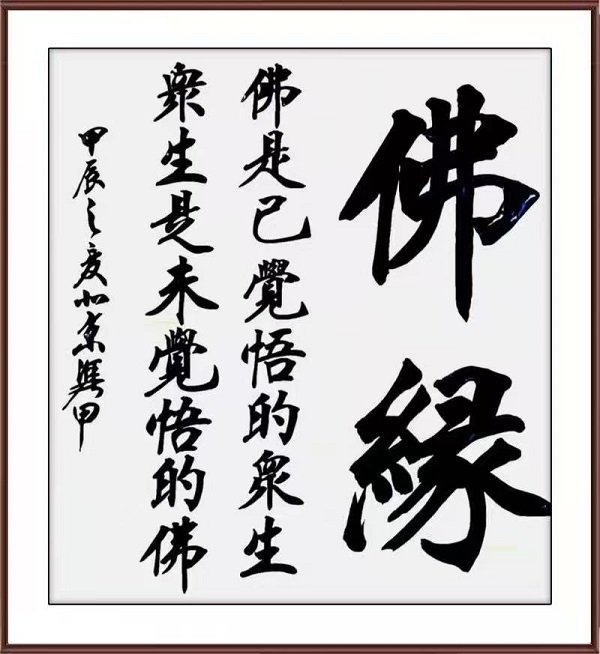 佛緣
佛是已覺悟的眾生
眾生是未覺悟的佛
甲辰之夏北京